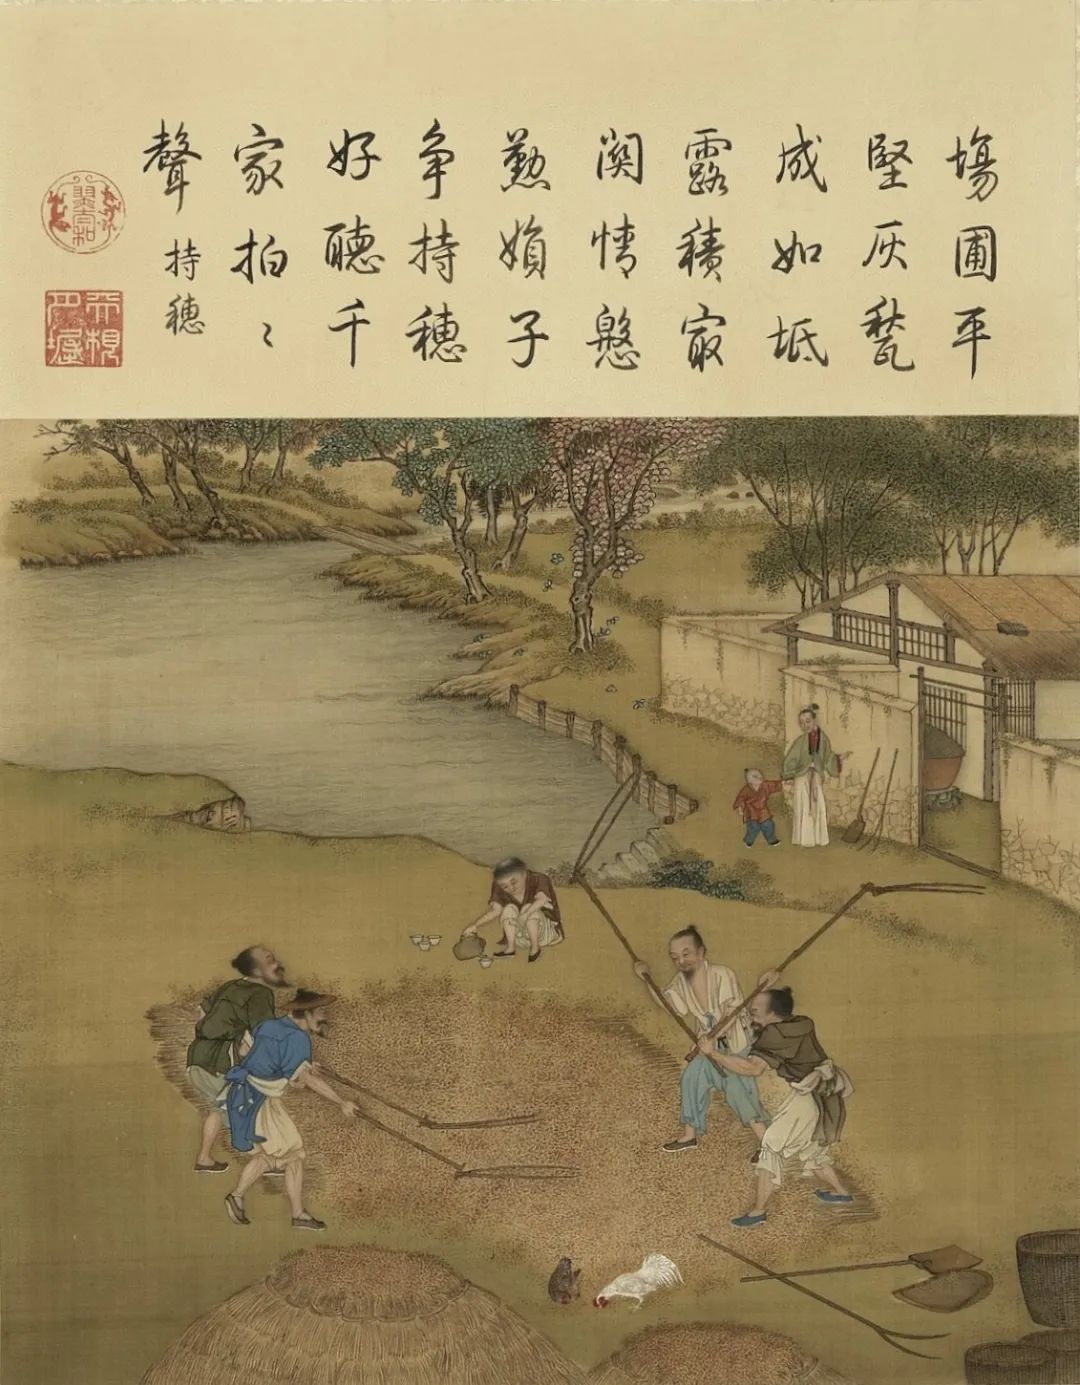 塲圃平
堅灰甃
成如坻
露積㝡
関情慇
懃媍子
争持穗
好聽千
家拍〻
聲
持穗